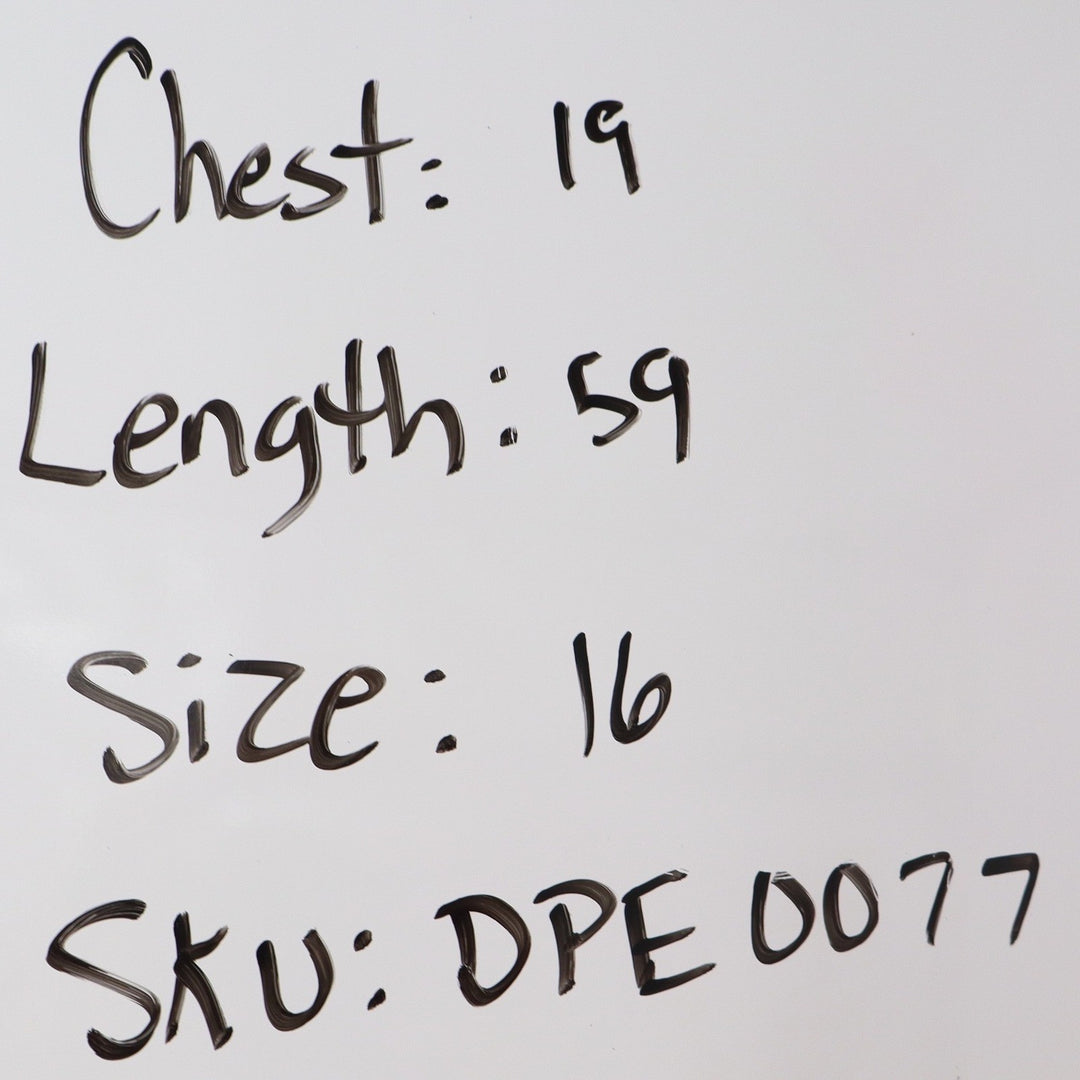 Chest: 19
Length: 59
Size: 16
SKU: DPE 0077